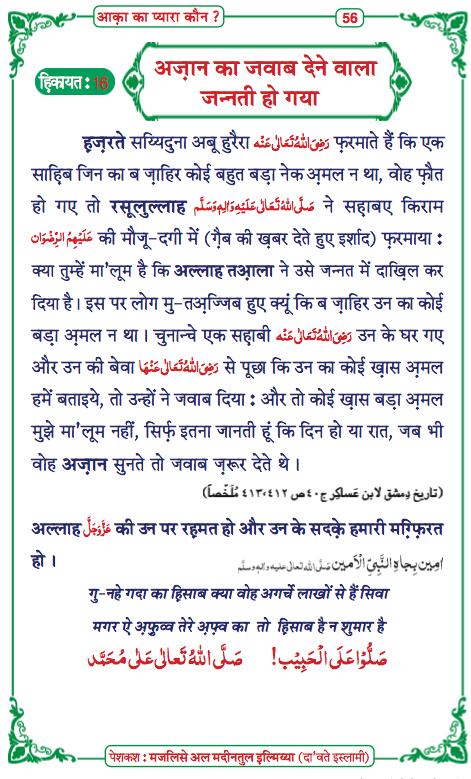 आक़ा का प्यारा कौन ?
56
हिकायत : 16
अज़ान का जवाब देने वाला
जन्नती हो गया
हज़रते सय्यिदुना अबू हुरैरा رَضِیَ اللہُ تَعَالٰی عَنْہ फ़रमाते हैं कि एक
साहिब जिन का ब ज़ाहिर कोई बहुत बड़ा नेक अ़मल न था, वोह फ़ौत
हो गए तो रसूलुल्लाह صَلَّی اللہُ تَعَالٰی عَلَیْہِ وَاٰلِہٖ وَسَلَّم ने सहाबए किराम
عَلَیْہِمُ الرِّضْوَان की मौजू-दगी में (ग़ैब की ख़बर देते हुए इर्शाद) फ़रमाया :
क्या तुम्हें मा'लूम है कि अल्लाह तआ़ला ने उसे जन्नत में दाख़िल कर
दिया है। इस पर लोग मु-तअ़ज्जिब हुए क्यूं कि ब ज़ाहिर उन का कोई
बड़ा अ़मल न था। चुनान्चे एक सहाबी رَضِیَ اللہُ تَعَالٰی عَنْہ उन के घर गए
और उन की बेवा رَضِیَ اللہُ تَعَالٰی عَنْہَا से पूछा कि उन का कोई ख़ास अ़मल
हमें बताइये, तो उन्हों ने जवाब दिया : और तो कोई ख़ास बड़ा अ़मल
मुझे मा'लूम नहीं, सिर्फ़ इतना जानती हूं कि दिन हो या रात, जब भी
वोह अज़ान सुनते तो जवाब ज़रूर देते थे।
(تاریخ دِمشق لابن عَساکِر ج۴۰ص ۴۱۲،۴۱۳ مُلَخّصاً)
अल्लाह عَزَّوَجَلَّ की उन पर रहमत हो और उन के सदक़े हमारी मग़्फ़िरत
हो। اٰمِین بِجَاہِ النَّبِیِّ الْاَمین صَلَّی اللہ تعالٰی علیہ واٰلہٖ وسلَّم
गु-नहे गदा का हिसाब क्या वोह अगर्चे लाखों से हैं सिवा
मगर ऐ अ़फुव्व तेरे अ़फ़्व का तो हिसाब है न शुमार है
صَلُّوْا عَلَی الْحَبِیْب! صَلَّی اللہُ تَعَالٰی عَلٰی مُحَمَّد
पेशकश : मजलिसे अल मदीनतुल इ़ल्मिय्या (दा'वते इस्लामी)